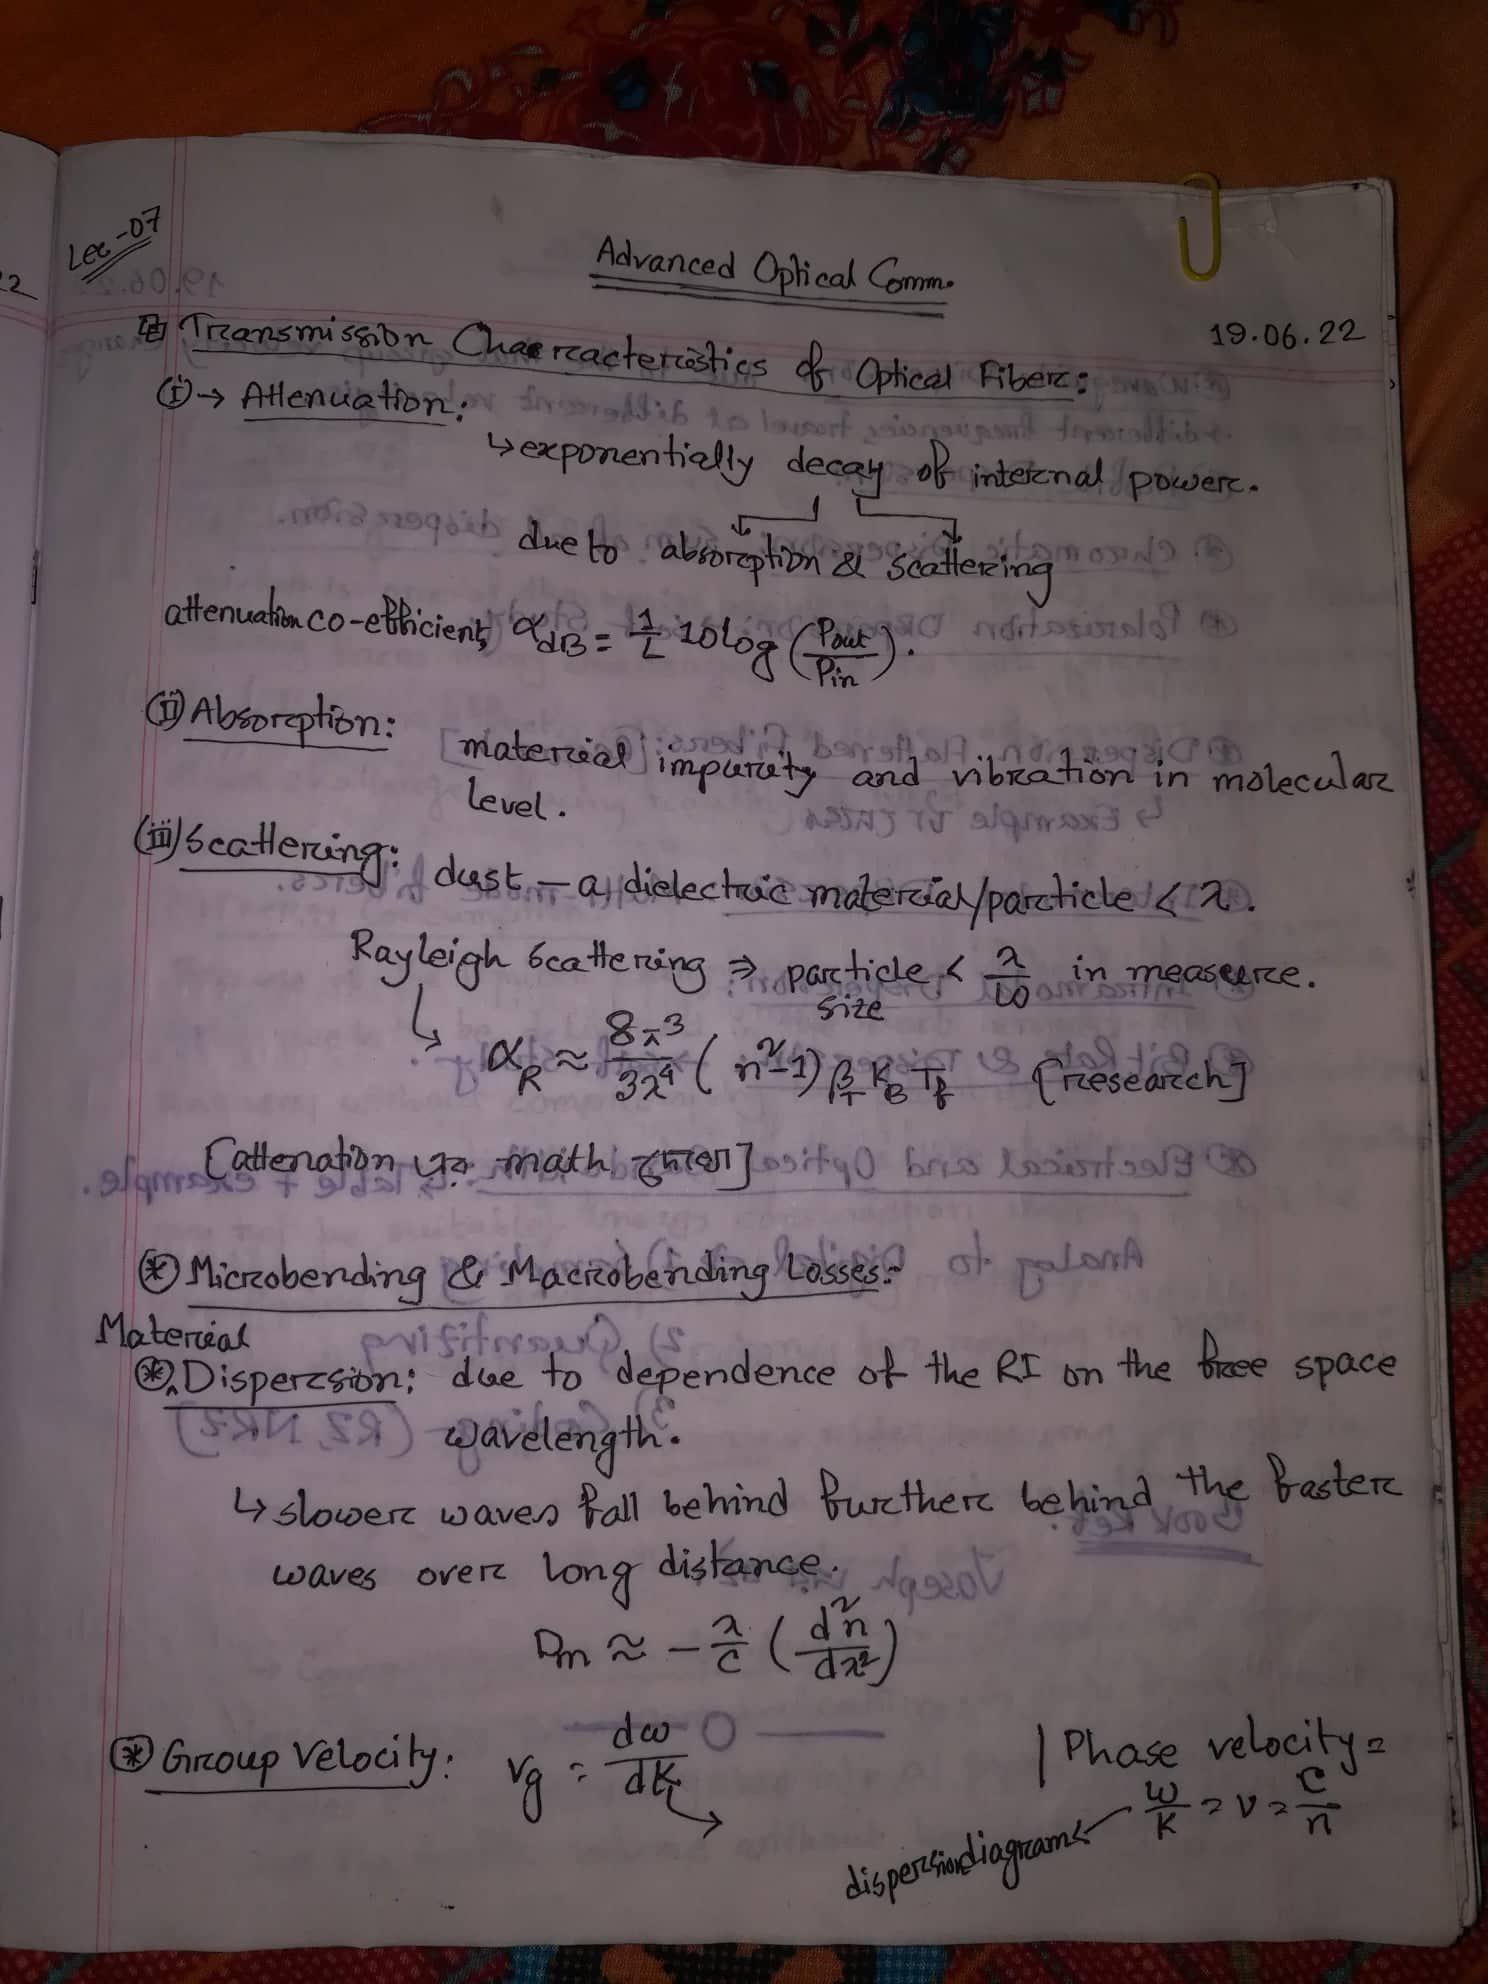 Lec-07
Advanced Optical Comm.
19.06.22
Transmission Characteristics of Optical Fiber:
(i) → Attenuation:
↳ exponentially decay of internal power.
due to absorption & scattering
attenuation co-efficient, α_dB = 1/L 10 log (Pout/Pin).
(ii) Absorption:
material impurity and vibration in molecular
level.
(iii) Scattering:
dust — a dielectric material/particle < λ.
Rayleigh Scattering ⇒ particle size < λ/10 in measure.
↳ α_R ≈ 8π³/3λ⁴ (n²-1) β_T K_B T_f [research]
[attenation এর math দেখো]
⊛ Microbending & Macrobending Losses:-
⊛ Material Dispersion: due to dependence of the RI on the free space
wavelength.
↳ slower waves fall behind further behind the faster
waves over long distance.
Dm ≈ - λ/c (d²n/dλ²)
⊛ Group Velocity: vg = dω/dk
| Phase velocity =
ω/k = v = c/n
dispersion diagram